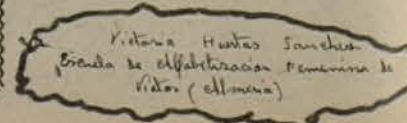 Victoria Huertas Sanchez
Escuela de Alfabetizacion Femenina de
Viator (Almeria)